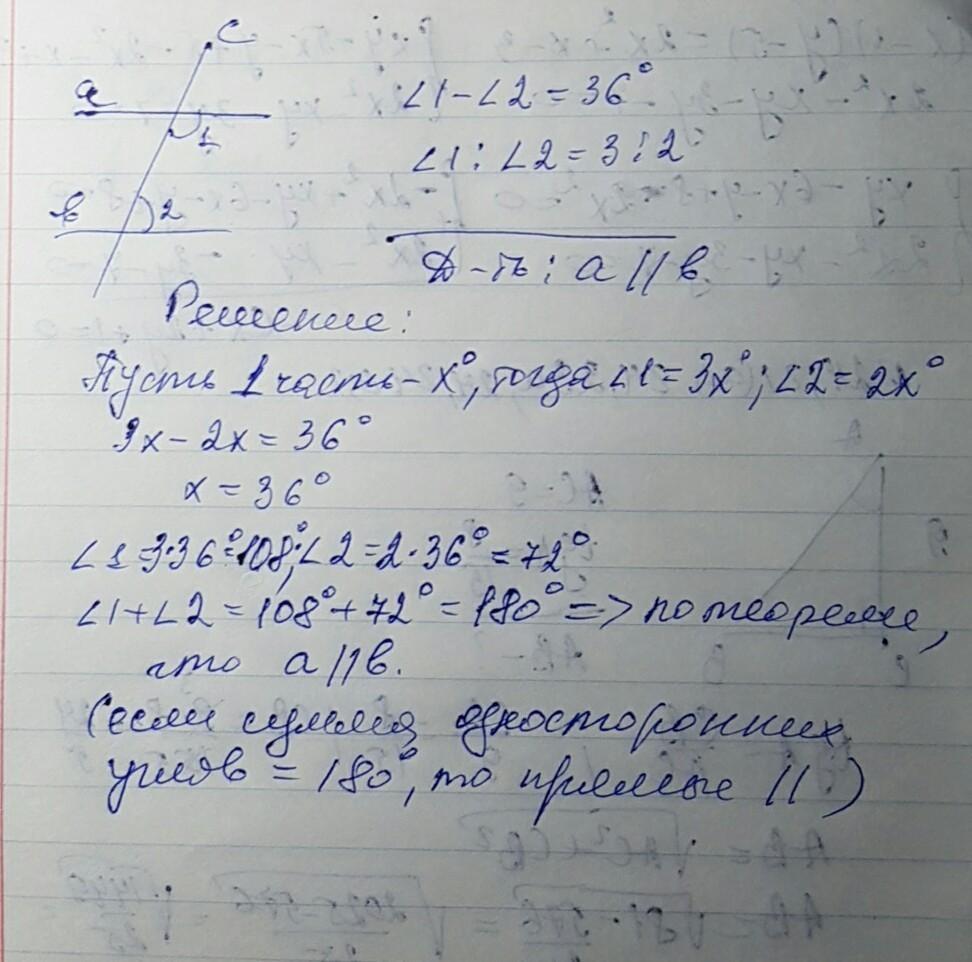 c
a
1
в
2
∠1-∠2=36°
∠1:∠2=3:2
Д-ть: a||в
Решение:
Пусть 1 часть-x°, тогда ∠1=3x°; ∠2=2x°
3x-2x=36°
x=36°
∠1=3·36°=108°; ∠2=2·36°=72°
∠1+∠2=108°+72°=180° => по теореме,
что a||в.
(если сумма односторонних
углов =180°, то прямые || )